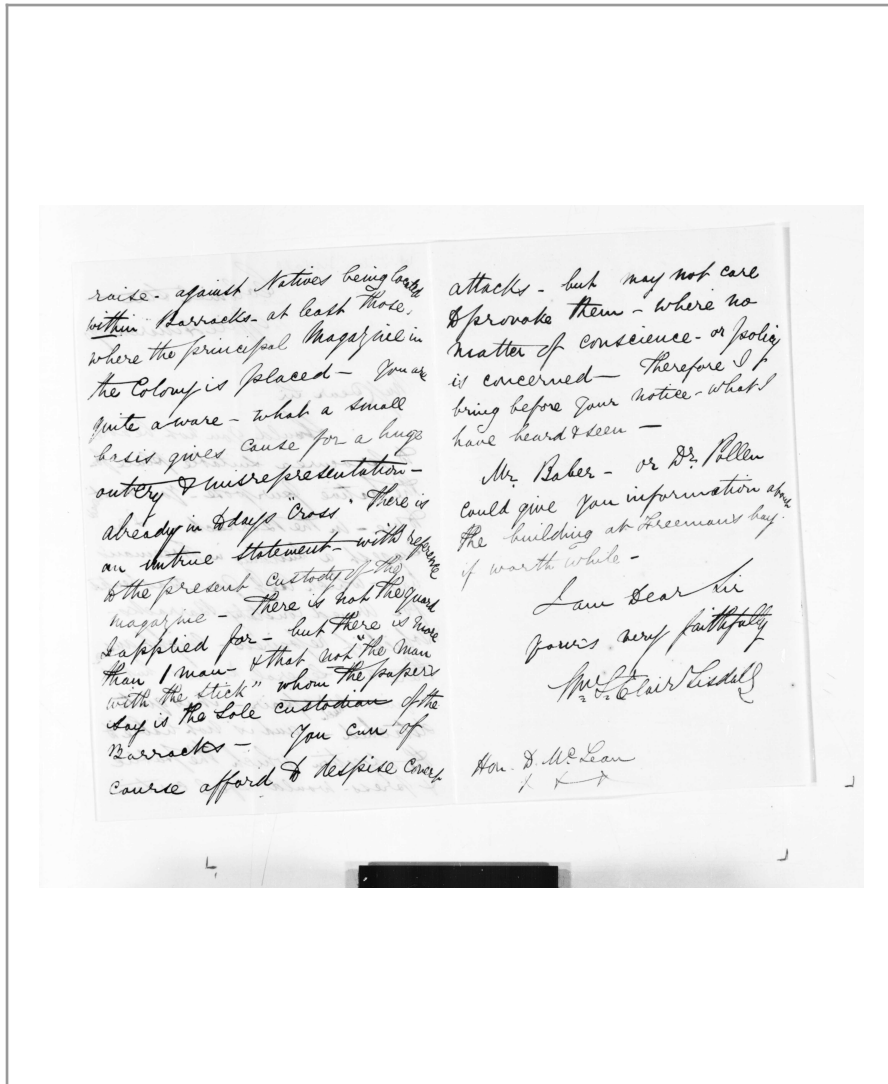 raise - against Natives being located
within Barracks - at least those,
where the principal Magazine in
the Colony is placed - You are
quite aware - what a small
basis gives cause for a huge
outcry & misrepresentation -
already in to days "Cross" There is
an untrue statement - with reference
to the present custody of the
magazine - There is not the guard
I applied for - but there is more
than 1 man - & that not "the man
with the stick" whom the papers
say is the sole custodian of the
Barracks - You can of
course afford to despise covert
attacks - but may not care
to provoke them - where no
matter of conscience - or policy
is concerned - Therefore I
bring before your notice - what I
have heard & seen -
Mr. Baber - or Dr. Pollen
could give you information about
the building at Freeman's bay
if worth while -
I am Dear Sir
yours very faithfully
Wm St Clair Tisdall
Hon. D. McLean